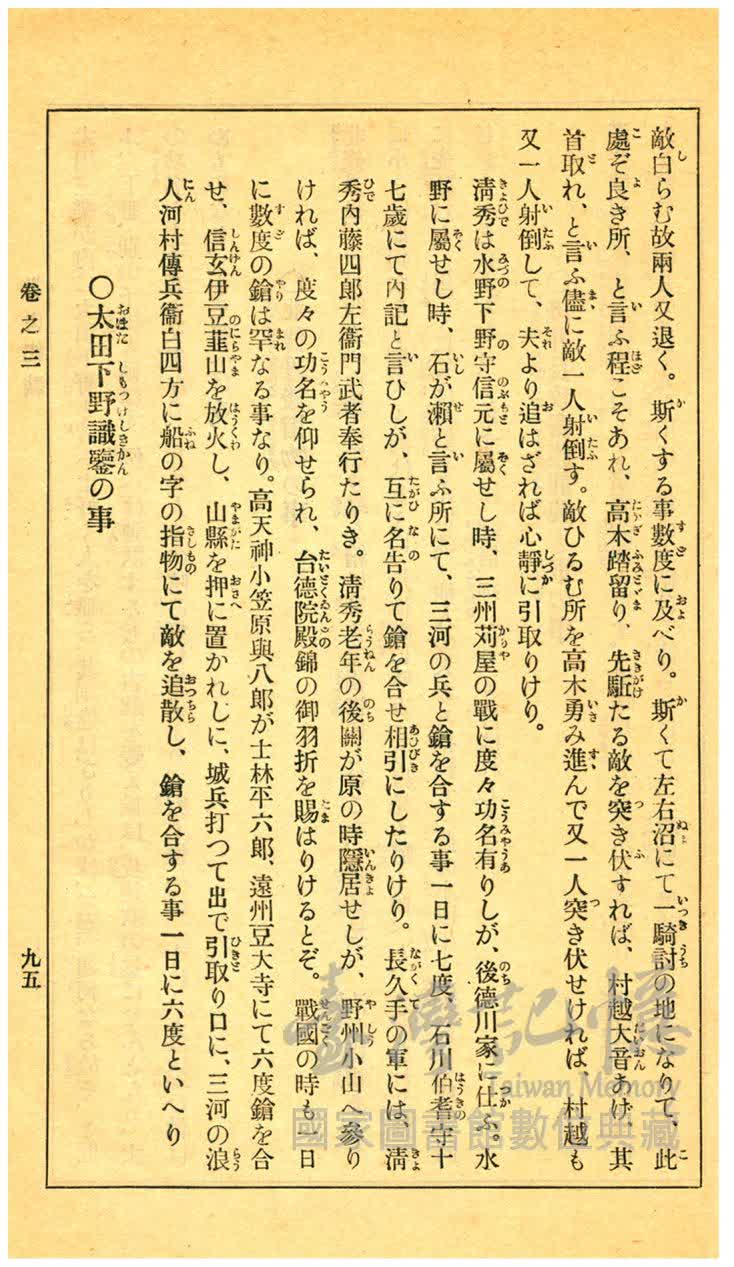 敵白らむ故兩人又退く。斯くする事數度に及べり。斯くて左右沼にて一騎討の地になりて、此
處ぞ良き所、と言ふ程こそあれ、高木踏留り、先駈たる敵を突き伏すれば、村越大音あげ、其
首取れ、と言ふ儘に敵一人射倒す。敵ひるむ所を高木勇み進んで又一人突き伏せければ、村越も
又一人射倒して、夫より追はざれば心靜に引取りけり。
淸秀は水野下野守信元に屬せし時、三州苅屋の戰に度々功名有りしが、後德川家に仕ふ。水
野に屬せし時、石が瀨と言ふ所にて、三河の兵と鎗を合する事一日に七度、石川伯耆守十
七歲にて內記と言ひしが、互に名告りて鎗を合せ相引にしたりけり。長久手の軍には、淸
秀內藤四郎左衞門武者奉行たりき。淸秀老年の後關が原の時隱居せしが、野州小山へ參り
ければ、度々の功名を仰せられ、台德院殿錦の御羽折を賜はりけるとぞ。戰國の時も一日
に數度の鎗は罕なる事なり。高天神小笠原與八郎が士林平六郎、遠州豆大寺にて六度鎗を合
せ、信玄伊豆韮山を放火し、山縣を押に置かれしに、城兵打つて出で引取り口に、三河の浪
人河村傳兵衞白四方に船の字の指物にて敵を追散し、鎗を合する事一日に六度といへり
〇太田下野識鑒の事
卷之三
九五
臺灣記憶
Taiwan Memory
國家圖書館數位典藏